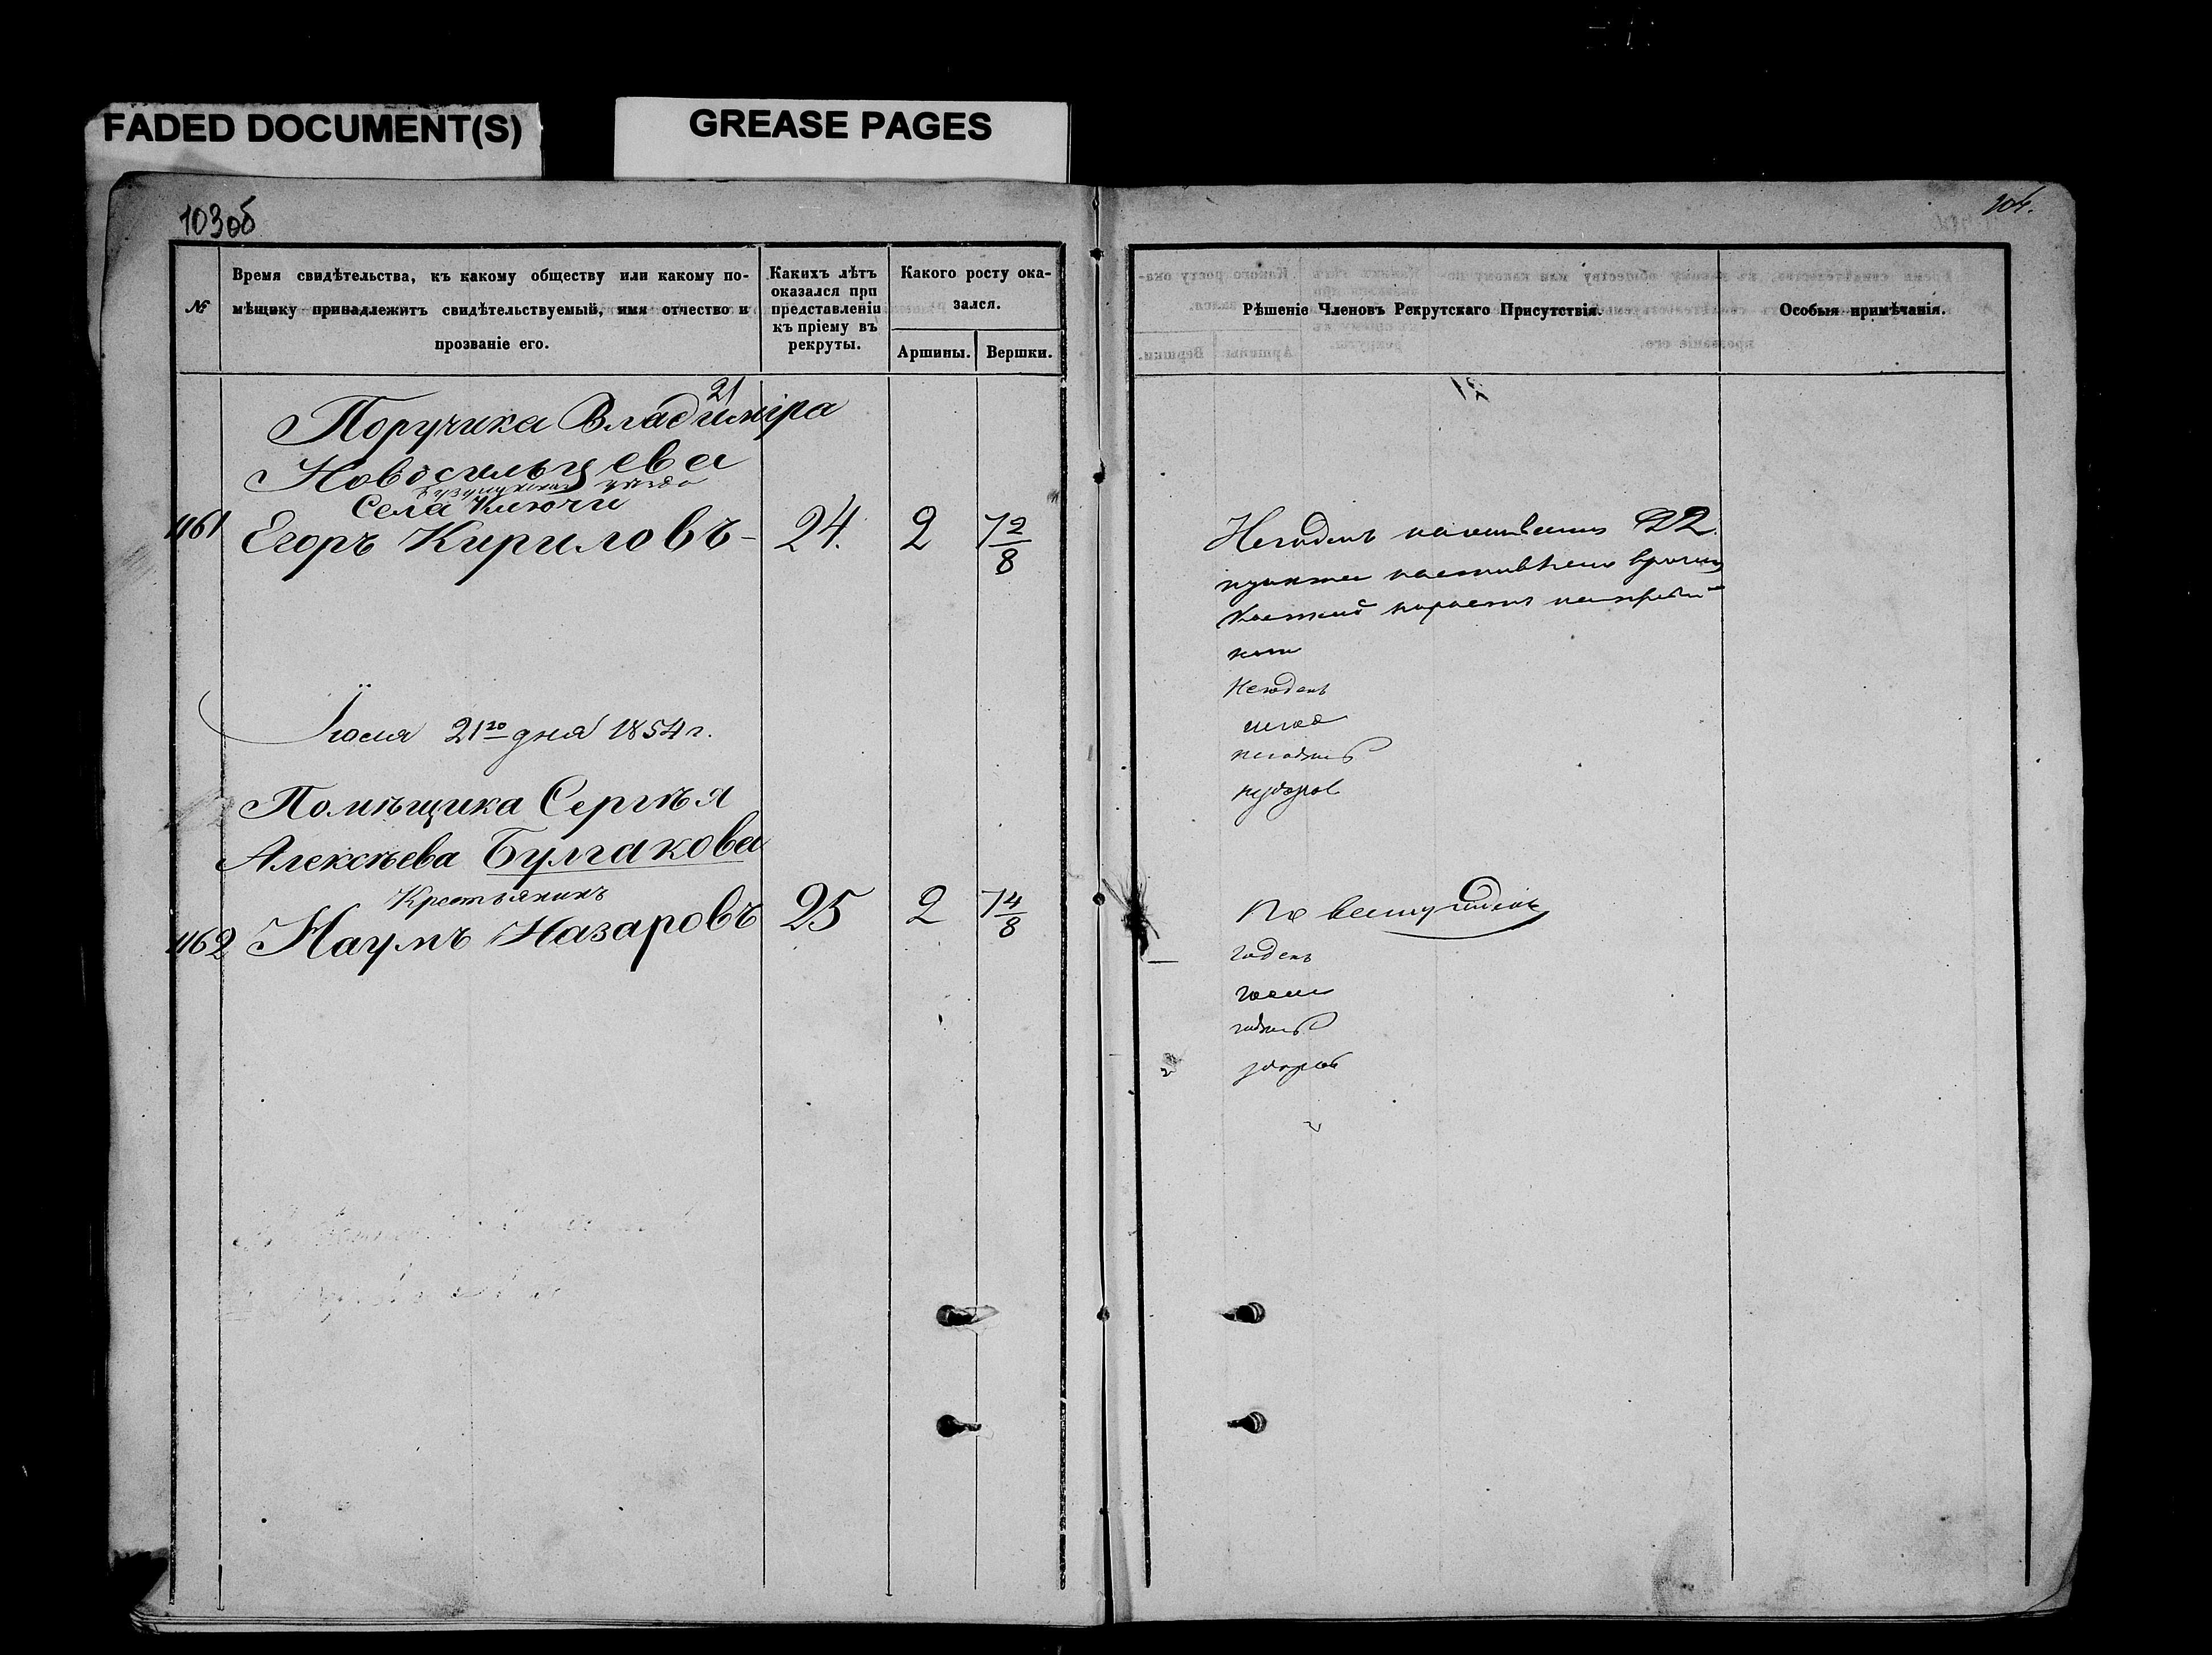 FADED DOCUMENT(S)
GREASE PAGES
103об
№
Время свидѣтельства, къ какому обществу или какому по-
мѣщику принадлежитъ свидѣтельствуемый, имя отчество и
прозваніе его.
Какихъ лѣтъ
оказался при
представленіи
къ пріему въ
рекруты.
Какого росту ока-
зался.
Аршины.
Вершки.
21
Поручика Владиміра
Новосильцева
Бузулукскаго уѣзда
Села Ключи
1161 Егоръ Кириловъ- 24. 2 7 2/8
Іюля 21го дня 1854 г.
Помѣщика Сергѣя
Алексѣева Булгакова
Крестьянинъ
1162 Наумъ Назаровъ 25 2 7 4/8
104.
Рѣшеніе Членовъ Рекрутскаго Присутствія.
Особыя примѣчанія.
Негоденъ 22
пункта наставленія
Негоденъ
негоденъ
нездоров
По всему годенъ
годенъ
годенъ
здоров